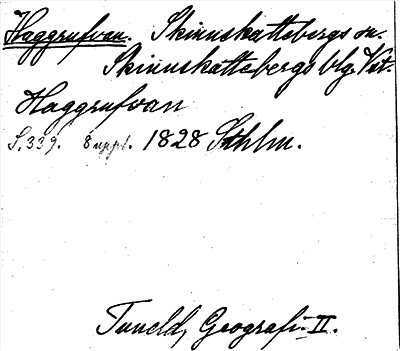 Haggrufvan. Skinnskattebergs sn.
Skinnskattebergs blg. Vst.
Haggrufvan
S. 339. 8 uppl. 1828 Sthlm.
Tuneld, Geografi. II.